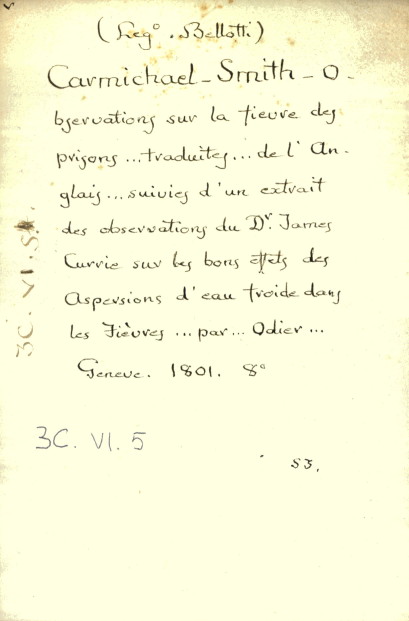 (Leg° . Bellotti)
Carmichael - Smith - O-
bservations sur la fievre des
prisons ... traduites ... de l' An-
glais ... suivies d'un extrait
des observations du Dr. James
Currie sur les bons effets des
Aspersions d'eau froide dans
les Fièvres ... par ... Odier ...
Geneve. 1801. 8°
3C. VI. 5
3C. VI. 5
53.